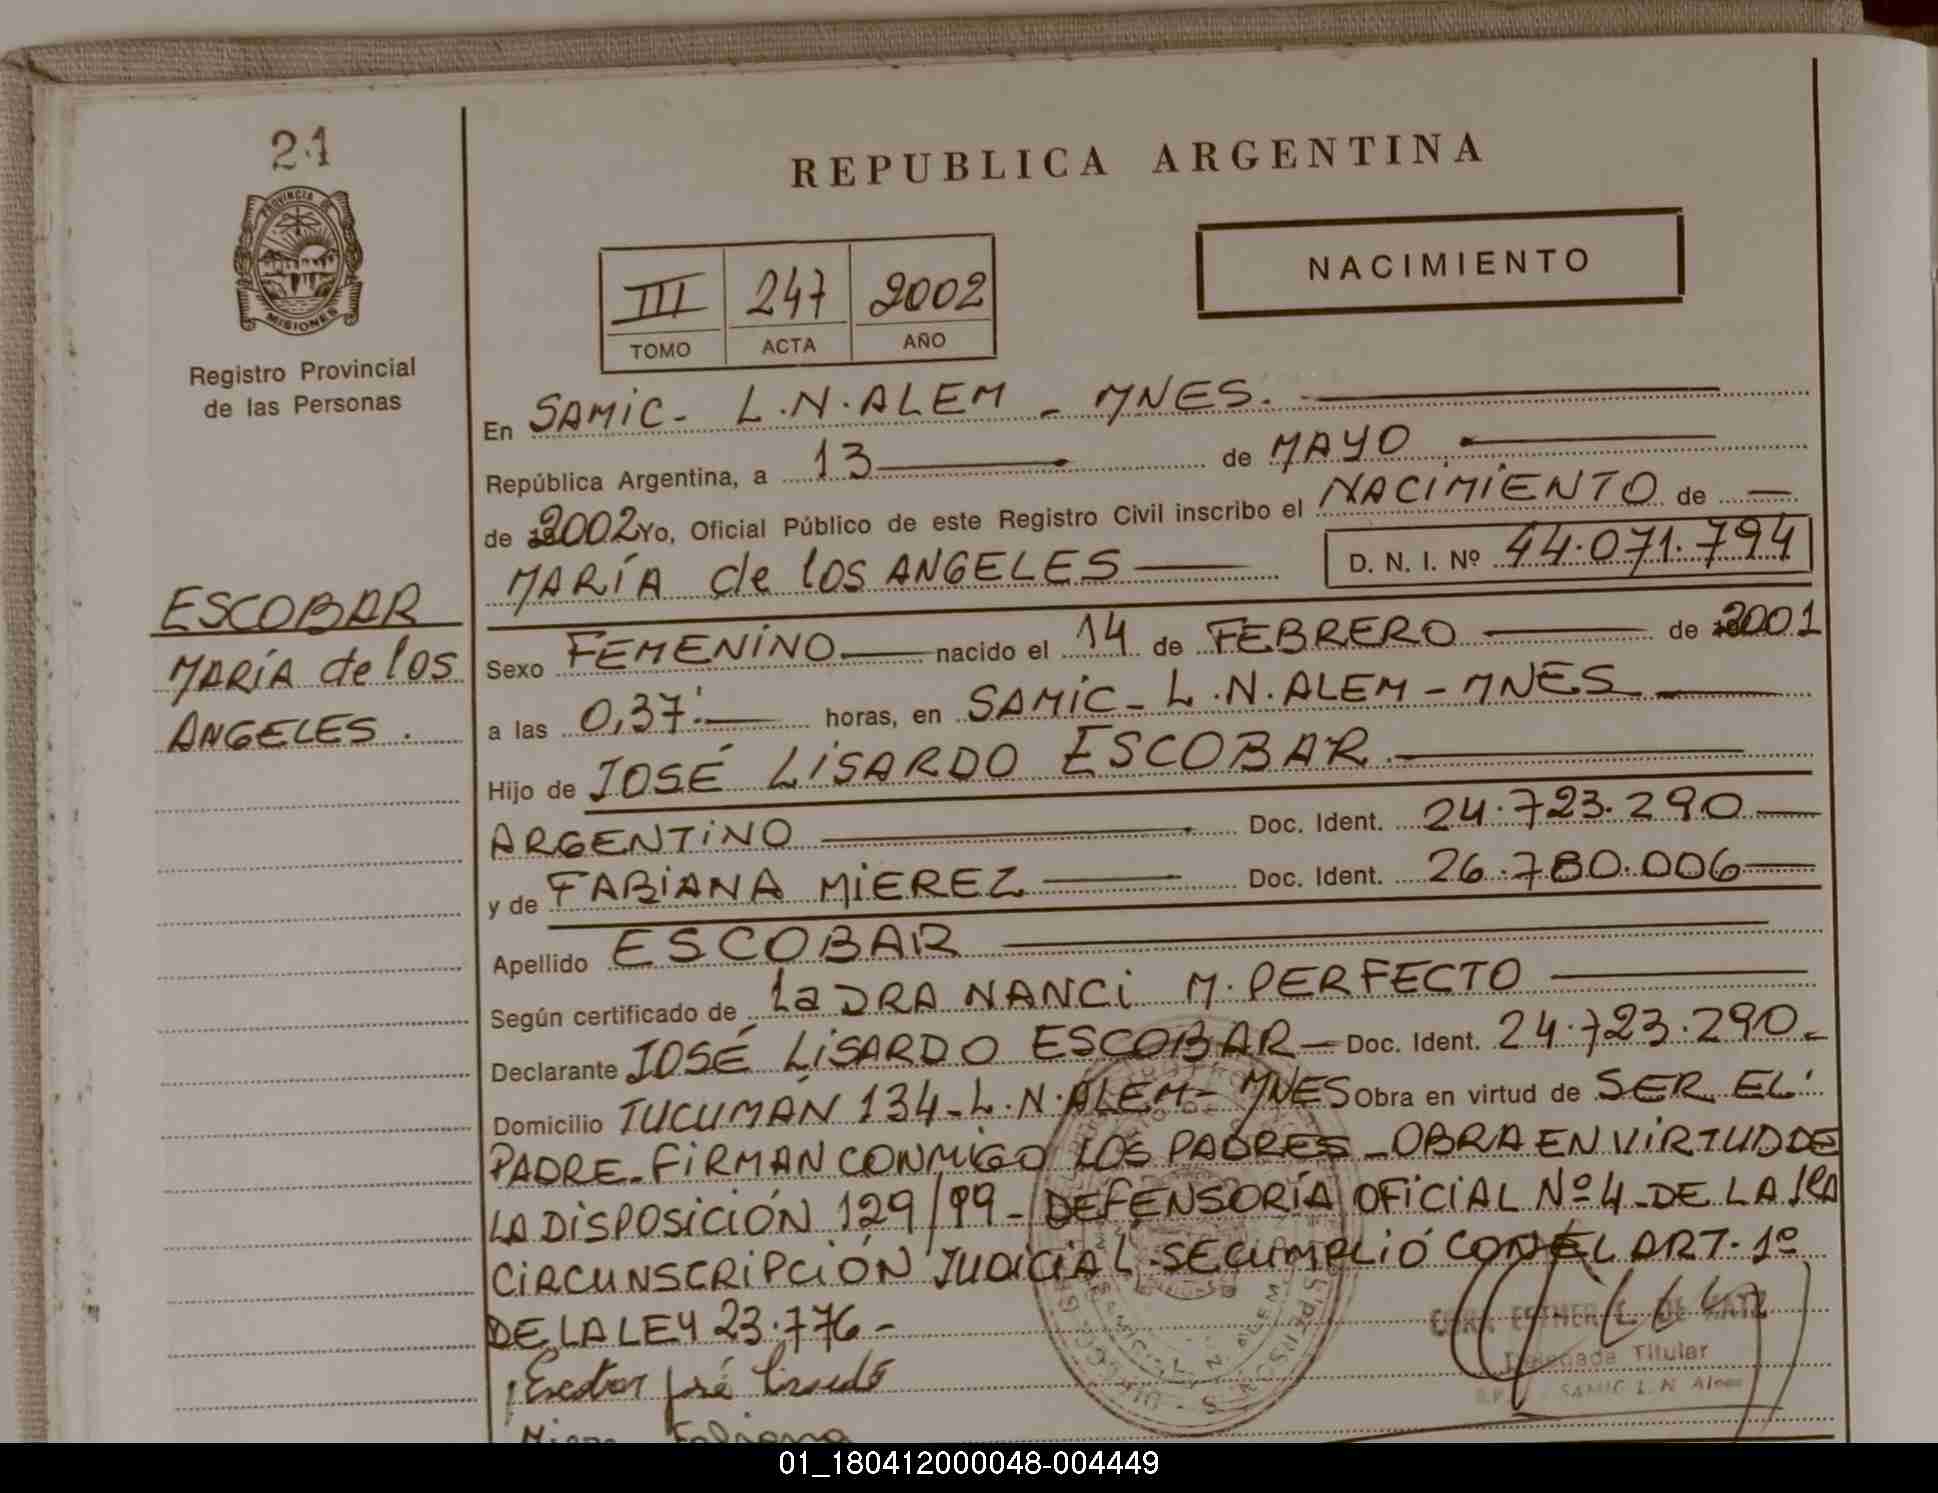 21
PROVINCIA DE
MISIONES
Registro Provincial
de las Personas
ESCOBAR
MARÍA de los
ANGELES.
REPUBLICA ARGENTINA
NACIMIENTO
III 247 2002
TOMO ACTA AÑO
En SAMIC - L.N.ALEM - MNES.
República Argentina, a 13 de MAYO
de 2002 Yo, Oficial Público de este Registro Civil inscribo el NACIMIENTO de
MARÍA de los ANGELES D. N. I. Nº 44.071.794
Sexo FEMENINO nacido el 14 de FEBRERO de 2001
a las 0,37' horas, en SAMIC - L.N.ALEM - MNES
Hijo de JOSÉ LISARDO ESCOBAR
ARGENTINO Doc. Ident. 24.723.290
y de FABIANA MIEREZ Doc. Ident. 26.780.006
Apellido ESCOBAR
Según certificado de la DRA NANCI M. PERFECTO
Declarante JOSÉ LISARDO ESCOBAR - Doc. Ident. 24.723.290.-
Domicilio TUCUMÁN 134 - L.N.ALEM - MNES Obra en virtud de SER EL
PADRE - FIRMAN CONMIGO LOS PADRES - OBRA EN VIRTUD DE
LA DISPOSICIÓN 129/99 - DEFENSORÍA OFICIAL Nº 4 - DE LA 1RA
CIRCUNSCRIPCIÓN JUDICIAL - SE CUMPLIÓ CON EL ART. 1º
DE LA LEY 23.776 -
Escobar José Lisardo
ESTHER E. DE
Delegada Titular
SAMIC L. N. Alem
Fabiana
01_180412000048-004449